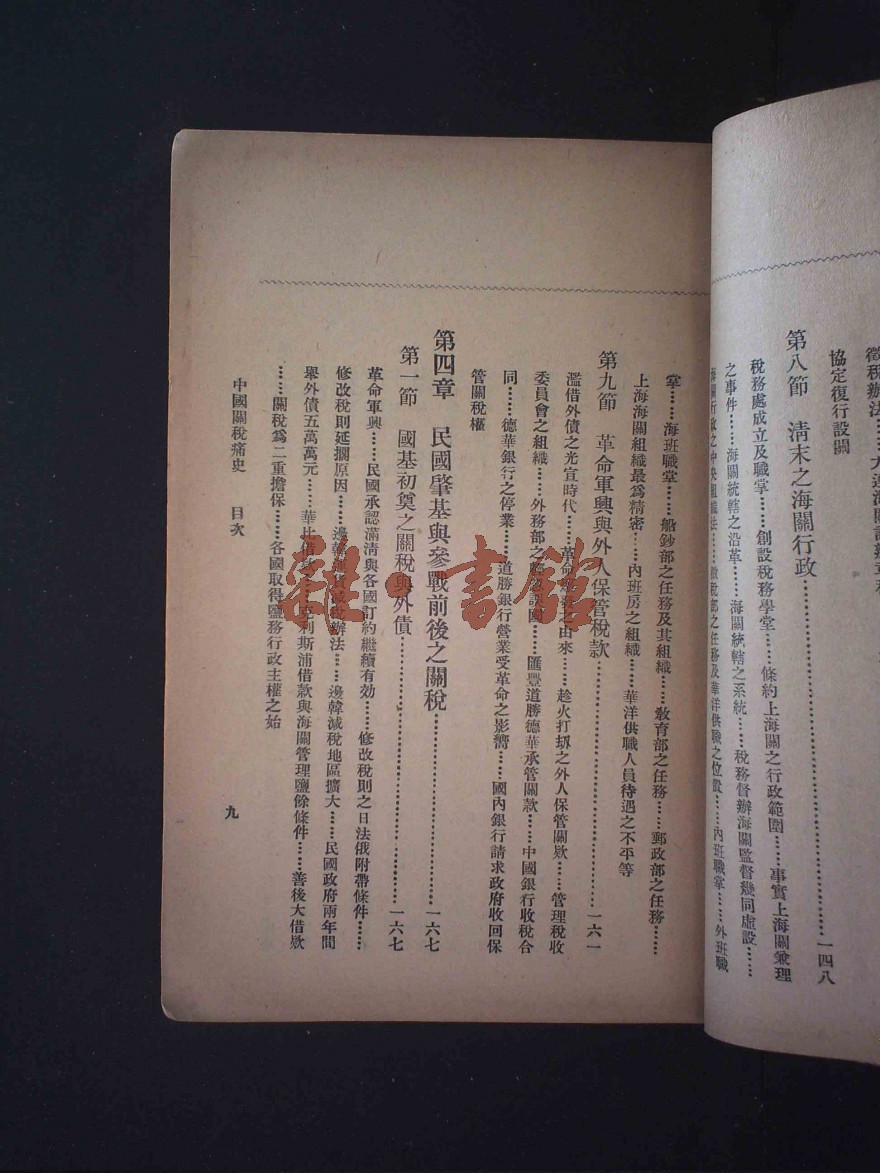 徵稅辦法……大連海關試辦章程
協定復行設關
第八節　清末之海關行政……一四八
稅務處成立及職掌……創設稅務學堂……條約上海關之行政範圍……事實上海關兼理
之事件……海關統轄之沿革……海關統轄之系統……稅務督辦海關監督變同虛設……
海關行政之中央組織法……徵稅部之任務及華洋供職之位置……內班職掌……外班職
掌……海班職掌……船鈔部之任務及其組織……敎育部之任務……郵政部之任務……
上海海關組織最爲精密……內班房之組織……華洋供職人員待遇之不平等
第九節　革命軍興與外人保管稅款……一六一
濫借外債之光宣時代……革命爆發之由來……趁火打刼之外人保管關欵……管理稅收
委員會之組織……外務部之誤國……匯豐道勝德華承管關款……中國銀行收稅合
同……德華銀行之停業……道勝銀行營業受革命之影響……國內銀行請求政府收回保
管關稅權
第四章　民國肇基與參戰前後之關稅……一六七
第一節　國基初奠之關稅與外債……一六七
革命軍興……民國承認滿清與各國訂約繼續有效……修改稅則之日法俄附帶條件……
修改稅則延擱原因……邊韓減稅辦法……邊韓減稅地區擴大……民國政府兩年間
舉外債五萬萬元……華比借款……克利斯浦借款與海關管理鹽餘條件……善後大借欵
……關稅爲二重擔保……各國取得鹽務行政主權之始
中國關稅痛史　目次
九
雜·書館